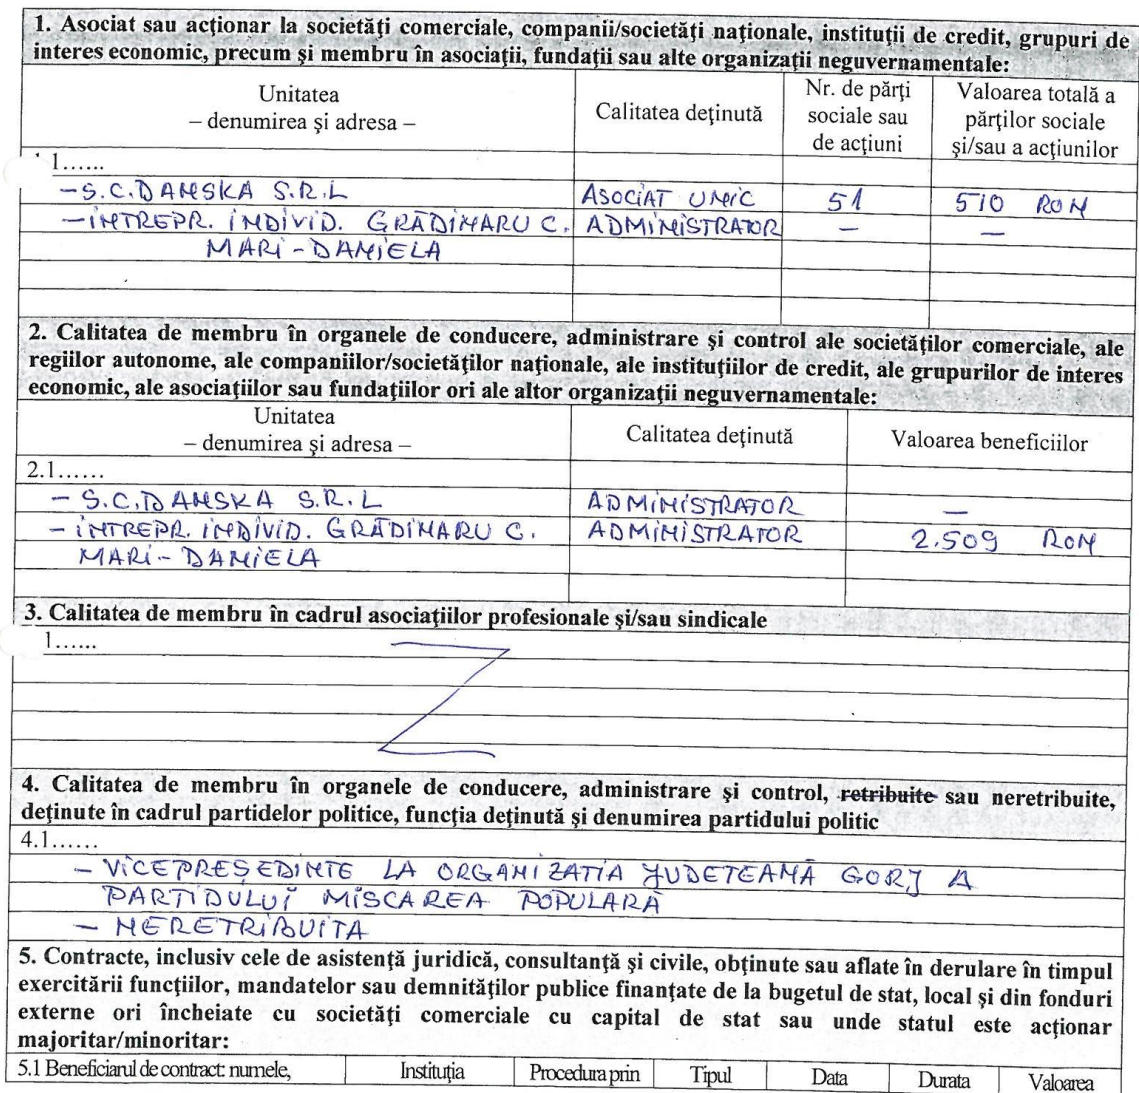 1. Asociat sau acţionar la societăţi comerciale, companii/societăţi naţionale, instituţii de credit, grupuri de
interes economic, precum şi membru în asociaţii, fundaţii sau alte organizaţii neguvernamentale:
Unitatea
– denumirea şi adresa –
Calitatea deţinută
Nr. de părţi
sociale sau
de acţiuni
Valoarea totală a
părţilor sociale
şi/sau a acţiunilor
1......
- S.C. DANSKA S.R.L ASOCIAT UNIC 51 510 RON
- INTREPR. INDIVID. GRĂDINARU C. ADMINISTRATOR – –
MARI-DANIELA
2. Calitatea de membru în organele de conducere, administrare şi control ale societăţilor comerciale, ale
regiilor autonome, ale companiilor/societăţilor naţionale, ale instituţiilor de credit, ale grupurilor de interes
economic, ale asociaţiilor sau fundaţiilor ori ale altor organizaţii neguvernamentale:
Unitatea
– denumirea şi adresa –
Calitatea deţinută
Valoarea beneficiilor
2.1......
- S.C. DANSKA S.R.L ADMINISTRATOR –
- INTREPR. INDIVID. GRĂDINARU C. ADMINISTRATOR 2.509 RON
MARI-DANIELA
3. Calitatea de membru în cadrul asociaţiilor profesionale şi/sau sindicale
1......
4. Calitatea de membru în organele de conducere, administrare şi control, retribuite sau neretribuite,
deţinute în cadrul partidelor politice, funcţia deţinută şi denumirea partidului politic
4.1......
- VICEPREŞEDINTE LA ORGANIZATIA JUDETEANĂ GORJ A
PARTIDULUI MISCAREA POPULARĂ
- NERETRIBUITA
5. Contracte, inclusiv cele de asistenţă juridică, consultanţă şi civile, obţinute sau aflate în derulare în timpul
exercitării funcţiilor, mandatelor sau demnităţilor publice finanţate de la bugetul de stat, local şi din fonduri
externe ori încheiate cu societăţi comerciale cu capital de stat sau unde statul este acţionar
majoritar/minoritar:
5.1 Beneficiarul de contract: numele, Instituţia Procedura prin Tipul Data Durata Valoarea